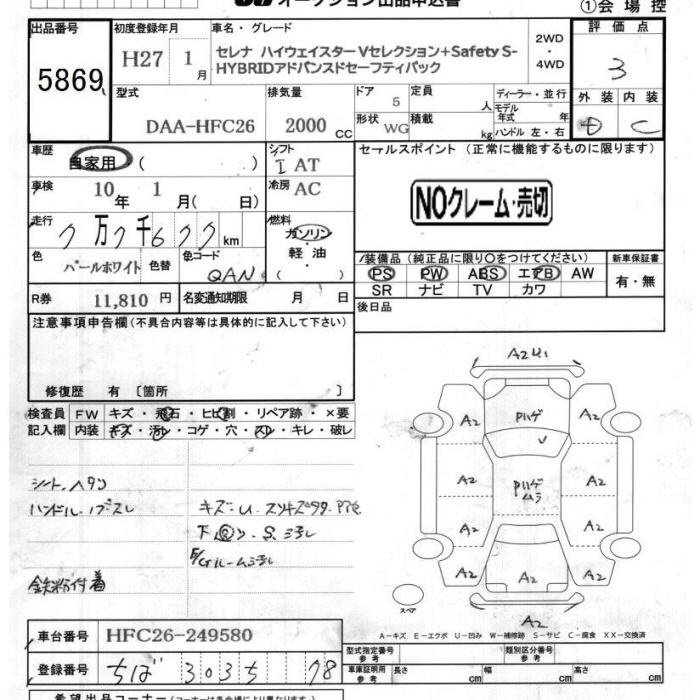 オークション出品申込書
①会場控
出品番号
初度登録年月
車名・グレード
評価点
5869
H27 1月
セレナ ハイウェイスターVセレクション+Safety S-
HYBRIDアドバンスドセーフティパック
2WD
・
4WD
3
型式
排気量
ドア 5
定員 人
ディーラー・並行
モデル年式 年
外装 内装
DAA-HFC26
2000 CC
形状 WG
積載 kg
ハンドル 左・右
D C
車歴
自家用 ( )
シフト
I AT
セールスポイント (正常に機能するものに限ります)
車検
10年 1月( 日)
冷房 AC
NOクレーム・売切
走行
7万7千677km
燃料
ガソリン・
軽・油
( )
色
パールホワイト
色替
色コード
QAN
装備品(純正品に限り○をつけてください)
新車保証書
PS PW ABS エアB AW
有・無
SR ナビ TV カワ
R券 11,810円
名変通知期限 月 日
後日品
注意事項申告欄(不具合内容等は具体的に記入して下さい)
修復歴 有 〔箇所 〕
検査員 FW キズ・飛石・ヒビ割・リペア跡・×要
記入欄 内装 キズ・汚レ・コゲ・穴・スレ・キレ・破レ
シート、ヘタリ
ハンドル、ハブスレ
鉄粉付着
A2 U1
A2 Pハゲ A2
A2 Pハゲ ムラ A2
A2 A2
A2 A2 A2
スペア
A2
A−キズ E−エクボ U−凹み W−補修跡 S−サビ C−腐食 XX−交換済
車台番号 HFC26-249580
型式指定番号 参考
類別区分番号 参考
登録番号 ちば 303 ち 78
車体証明用 参考
長さ cm
幅 cm
高さ cm
希望出品コーナー